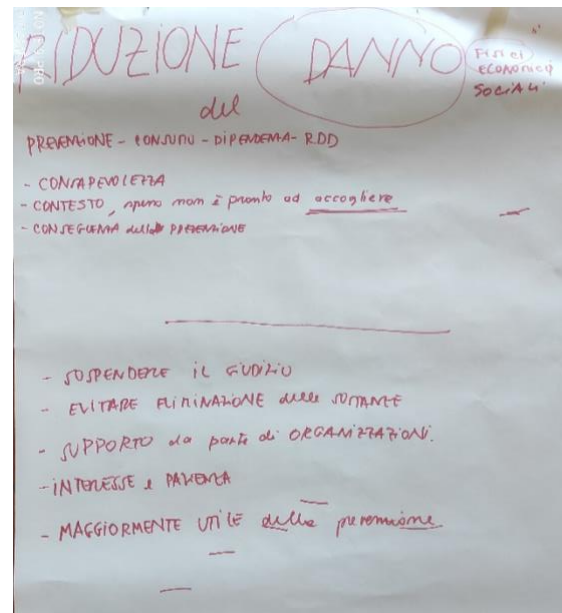 RIDUZIONE del DANNO
Fisici
economici
sociali
PREVENZIONE - CONSUMO - DIPENDENZA - RDD
- CONSAPEVOLEZZA
- CONTESTO, spesso non è pronto ad accogliere
- CONSEGUENZA della PREVENZIONE
- SOSPENDERE il GIUDIZIO
- EVITARE ELIMINAZIONE delle SOSTANZE
- SUPPORTO da parte di ORGANIZZAZIONI.
- INTERESSE e PAZIENZA
- MAGGIORMENTE UTILE della prevenzione